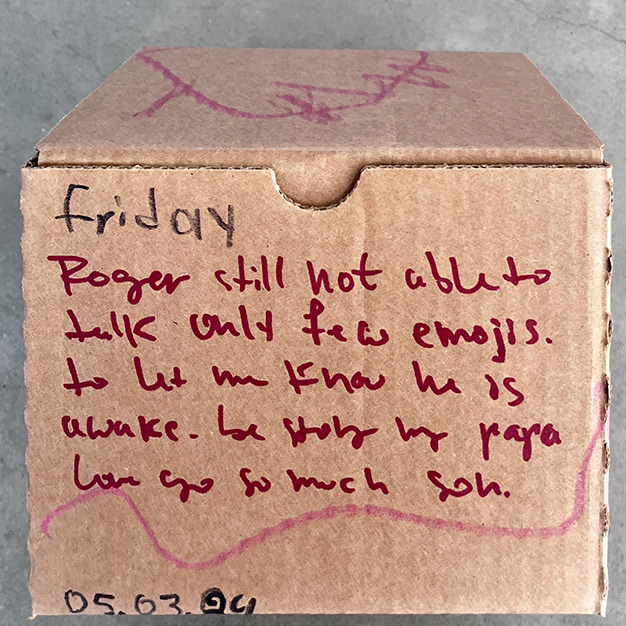 Friday
Roger still not able to
talk only few emojis.
to let me know he is
awake. be strong my papa
love yo so much son.
05.03.24